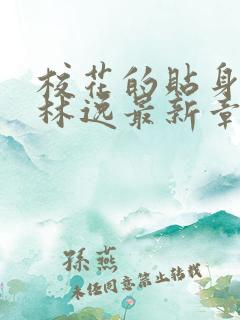 校花的贴身
林逸最新章
孫燕
未任同意禁止转载